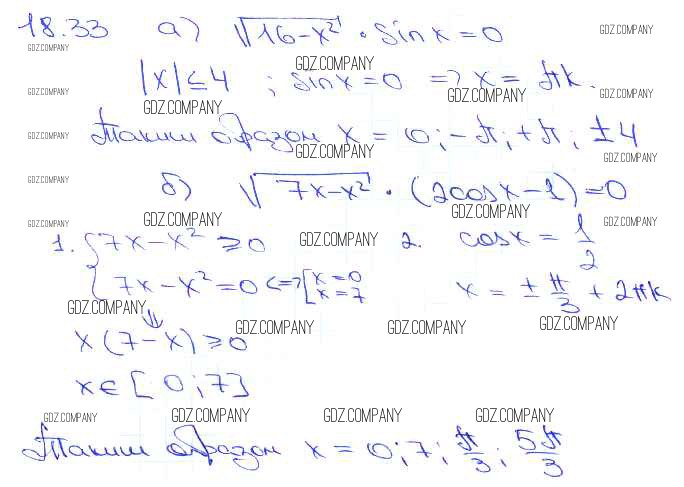 18.33 а) √16-x² · sin x = 0
GDZ.COMPANY GDZ.COMPANY GDZ.COMPANY
|x| ≤ 4 ; sin x = 0 => x = πk.
GDZ.COMPANY GDZ.COMPANY GDZ.COMPANY GDZ.COMPANY
Таким образом x = 0; -π; +π; ±4
GDZ.COMPANY GDZ.COMPANY GDZ.COMPANY
б) √7x-x² · (2cos x - 1) = 0
GDZ.COMPANY GDZ.COMPANY
GDZ.COMPANY GDZ.COMPANY GDZ.COMPANY
1. { 7x-x² ≥ 0 GDZ.COMPANY 2. cos x = 1/2
7x-x² = 0 <=> [ x = 0
x = 7
x = ± π/3 + 2πk
GDZ.COMPANY GDZ.COMPANY GDZ.COMPANY GDZ.COMPANY
⇓
x(7-x) ≥ 0
x ∈ [0; 7]
GDZ.COMPANY GDZ.COMPANY GDZ.COMPANY GDZ.COMPANY
Таким образом x = 0; 7; π/3; 5π/3